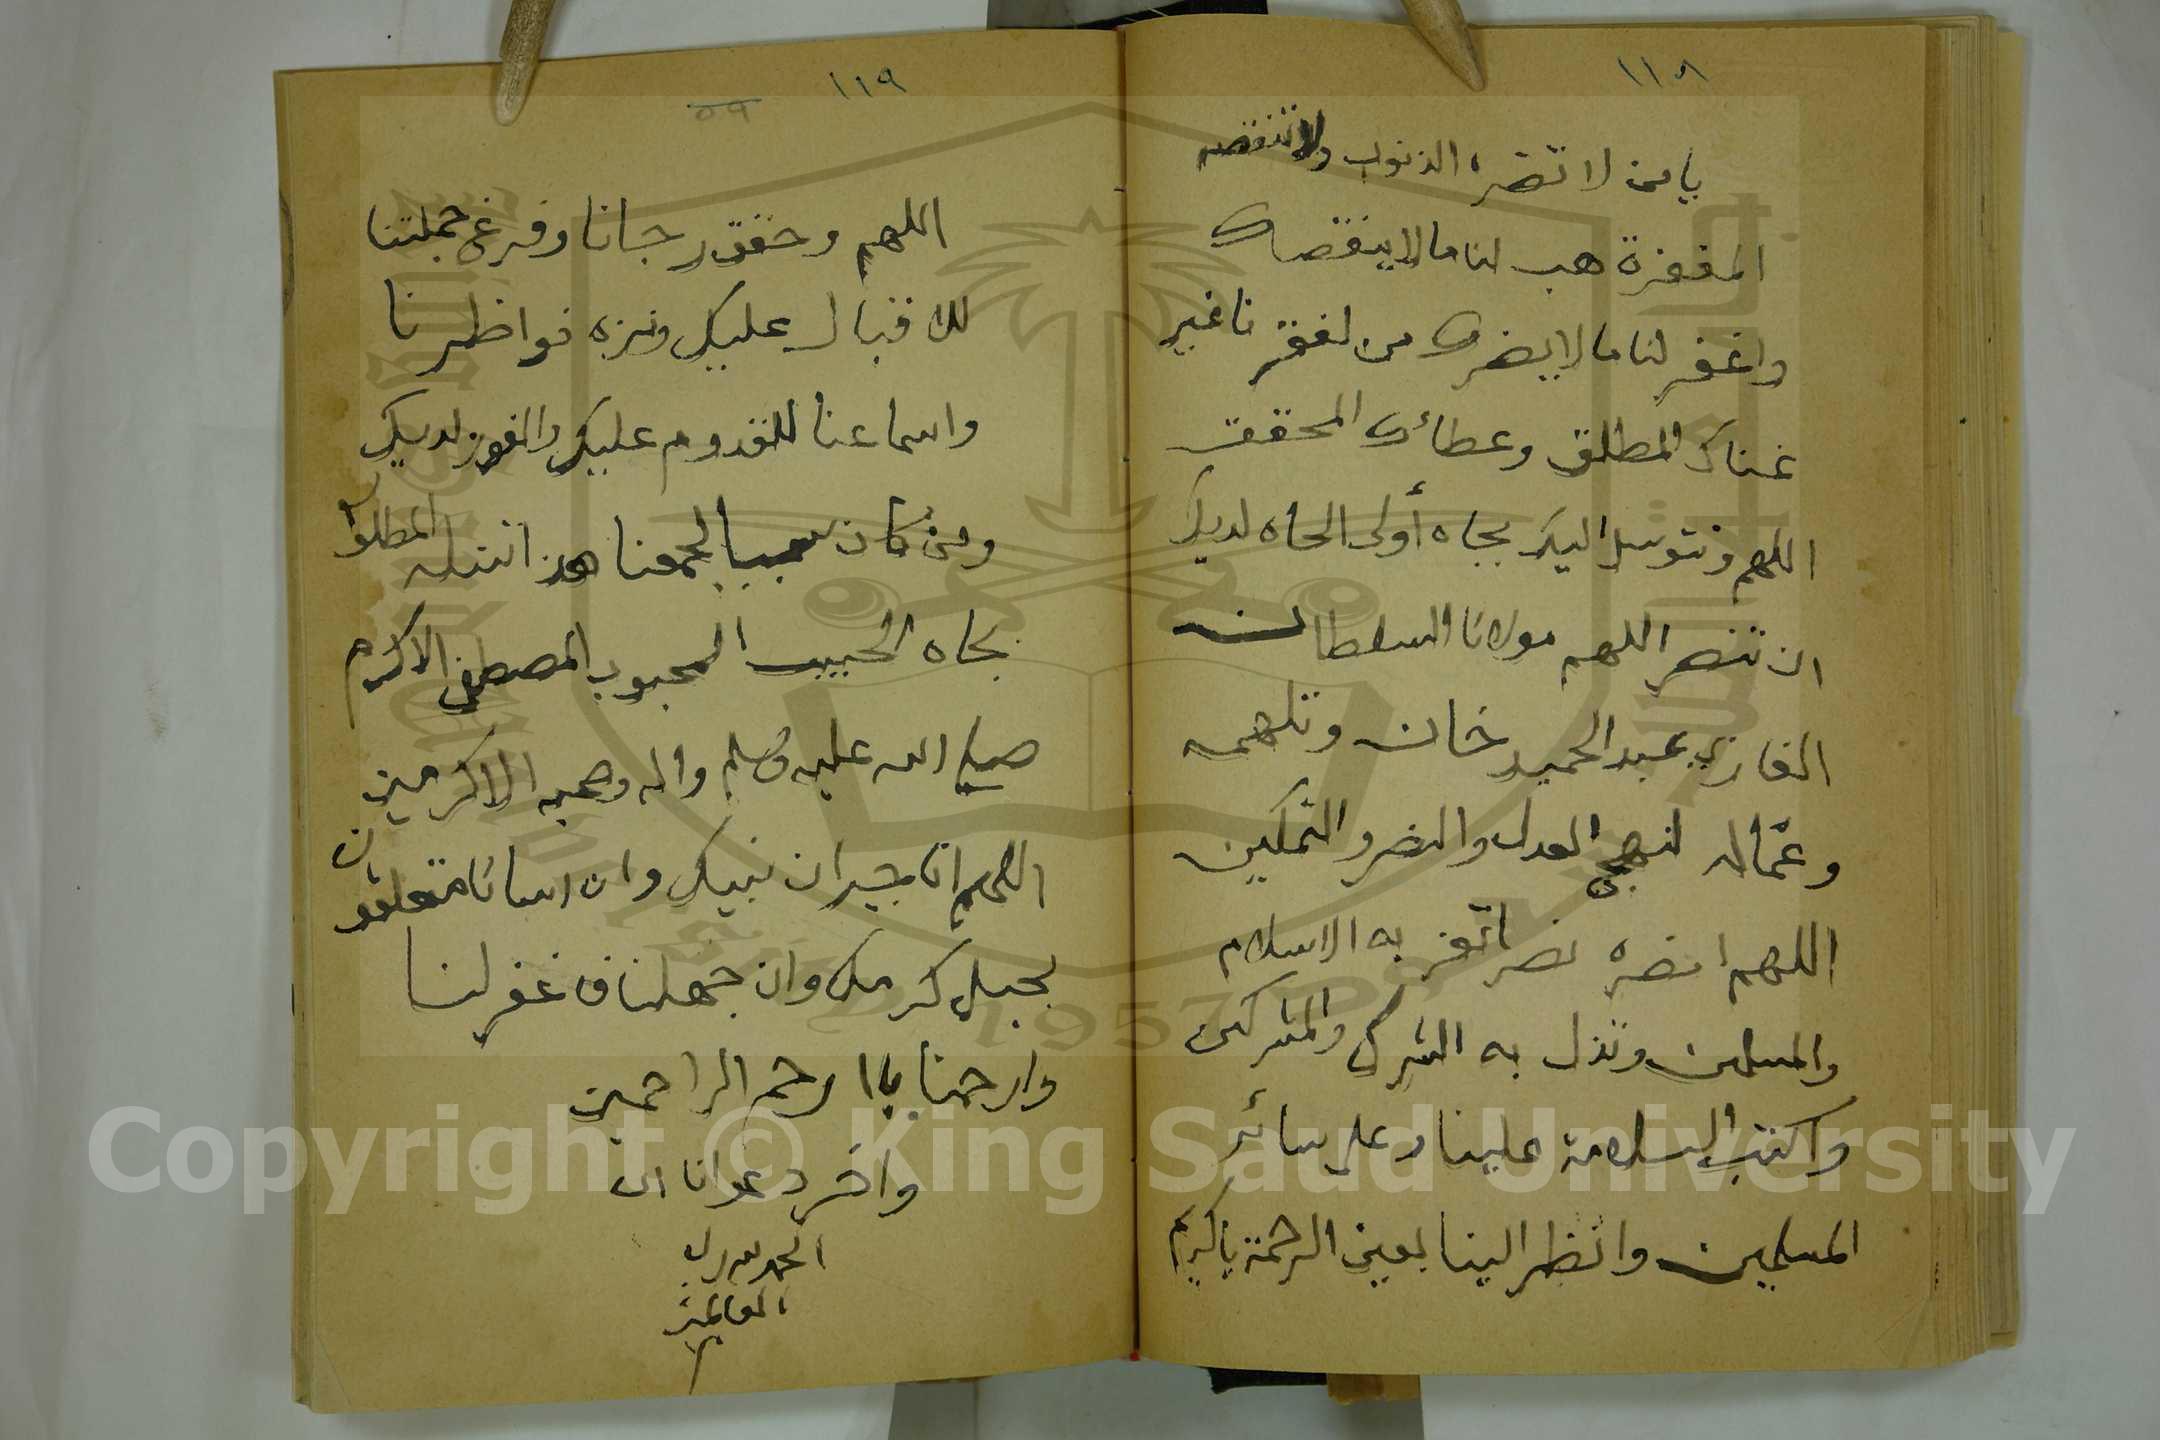 ١١٨
يا من لا تضره الذنوب ولا تنقصه
المغفرة هب لنا ما لا ينقصك
واغفر لنا ما لا يضرك من لفقرنا غير
غناك المطلق وعطائك المحقق
اللهم ونتوسل اليك بجاه أولى الجاه لديك
ان تنصر اللهم مولانا السلطان
الغازي عبد الحميد خان وتلهمه
وعمّاله لنهج العدل والنصر والتمكين
اللهم انصره نصرا تعز به الاسلام
والمسلمين وتذل به الشرك والمشركين
واكتب السلامة علينا وعلى سائر
المسلمين وانظر الينا بعين الرحمة يا كريم
١١٩
٥٩
اللهم وحقق رجانا وفرغ جملتنا
للاقبال عليك ونزه نواظرنا
واسماعنا للقدوم عليك والفوز لديك
ومن كان سببا لجمعنا هذا المطلوب
بجاه الحبيب المحبوب المصطفى الاكرم
صلى الله عليه وسلم واله وصحبه الاكرمين
اللهم انا جيران نبيك وان اسانا متعلقون
بحبل كرمك وان جهلنا فاغفر لنا
وارحمنا يا ارحم الراحمين
واخر دعوانا ان
الحمد لله رب
العالمين
م
Copyright © King Saud University
1957